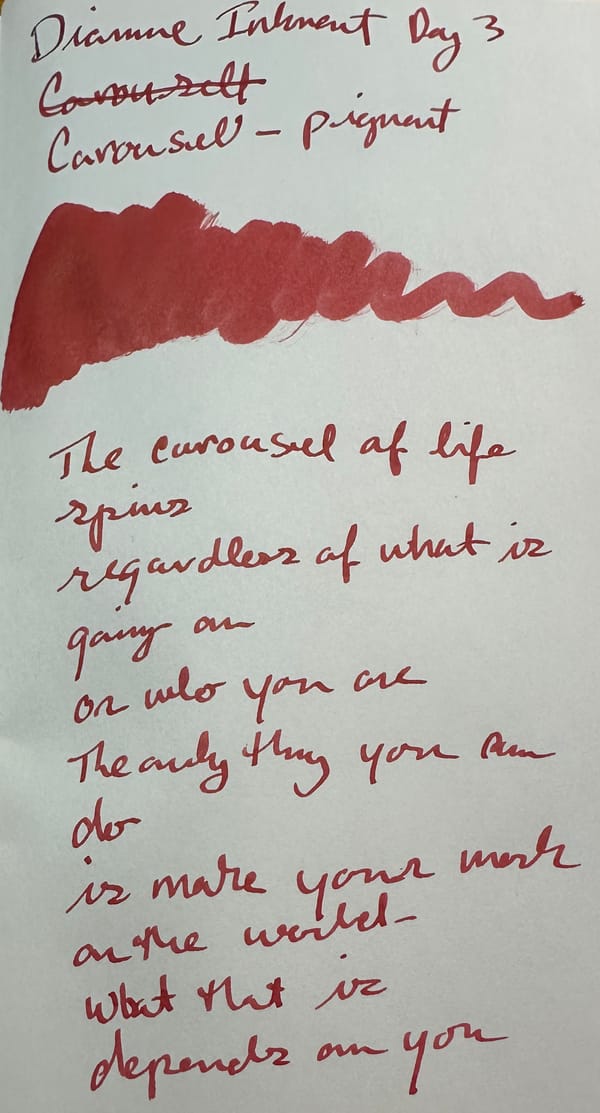 Diamine Inkvent Day 3
Carousel - pigment
The carousel of life
spins
regardless of what is
going on
or who you are
The only thing you can
do
is make your mark
on the world-
What that is
depends on you